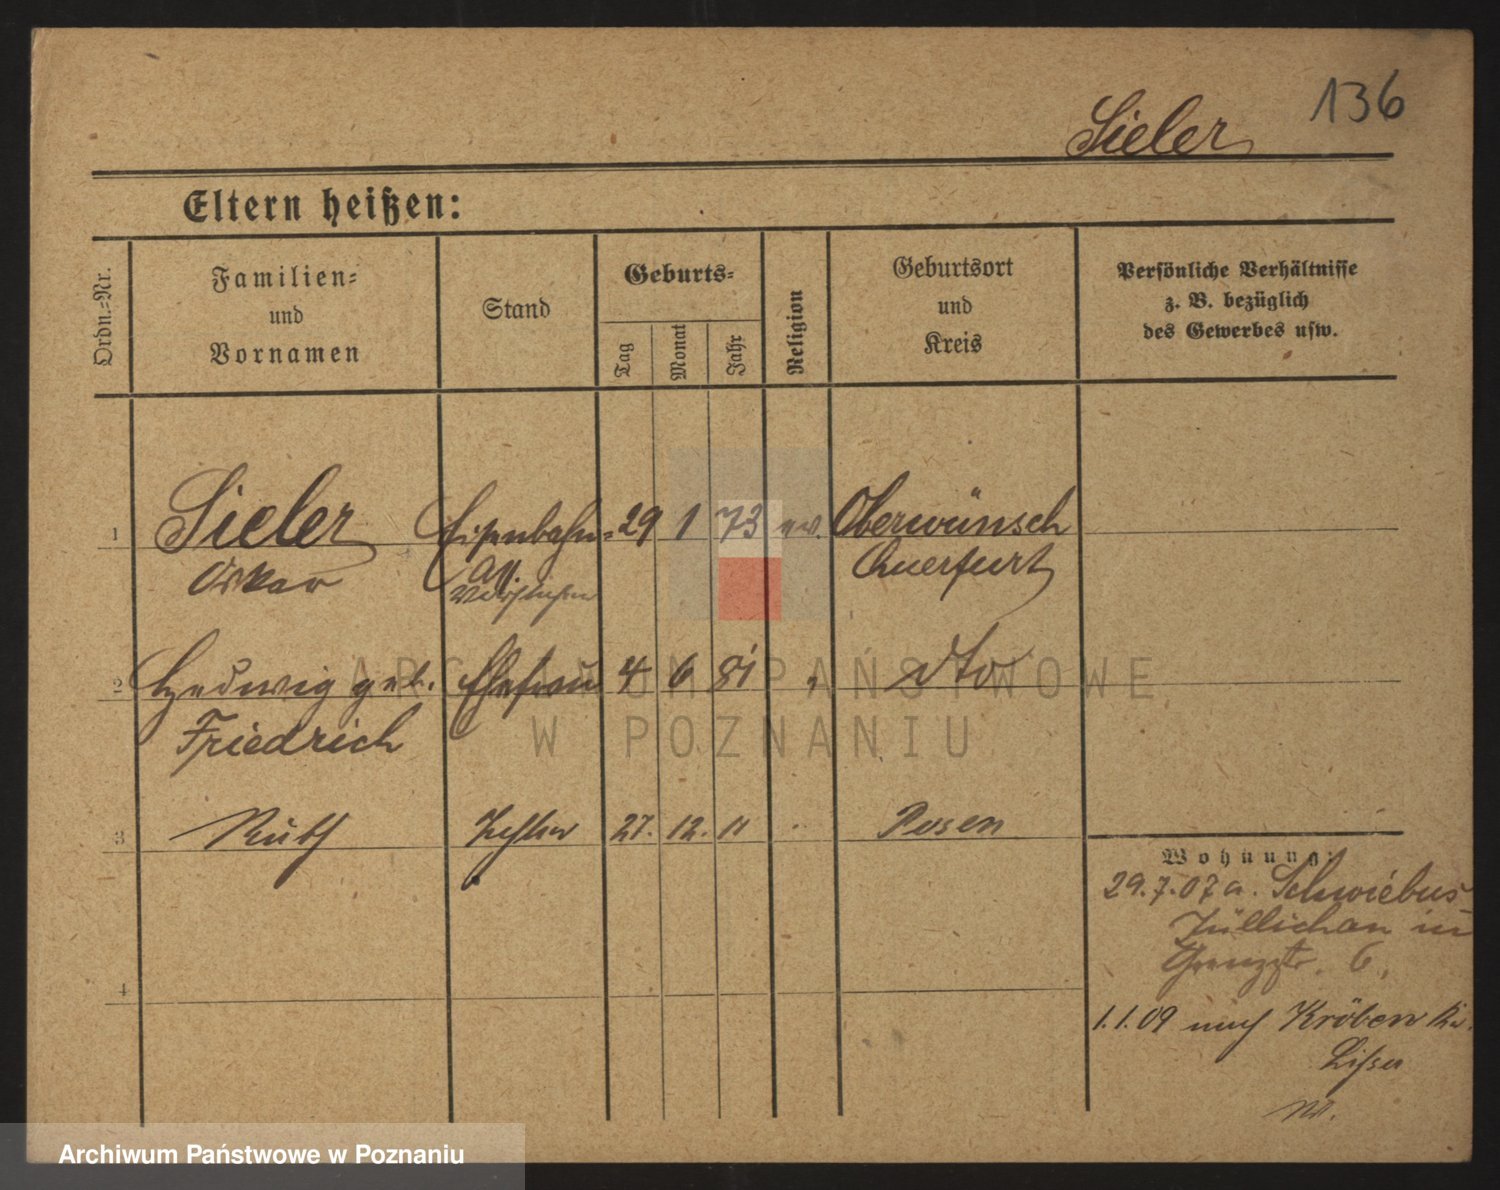 136
Sieler
Eltern heißen:
Ordn.-Nr.
Familien-
und
Vornamen
Stand
Geburts-
Tag
Monat
Jahr
Religion
Geburtsort
und
Kreis
Persönliche Verhältnisse
z. B. bezüglich
des Gewerbes usw.
1 Sieler Eisenbahn- 29 1 73 ev. Oberwünsch
Oskar Querfurt
2 Hedwig geb. Ehefrau 4 6 81 " dto
Friedrich
3 Ruth Tochter 27. 12. 11 Posen
4
Wohnung:
29.7.07 a. Schwiebus
Züllichau in
Grenzstr. 6,
1.1.09 nach Kröben Kr.
Lissa
ARCHIWUM PAŃSTWOWE
W POZNANIU
Archiwum Państwowe w Poznaniu